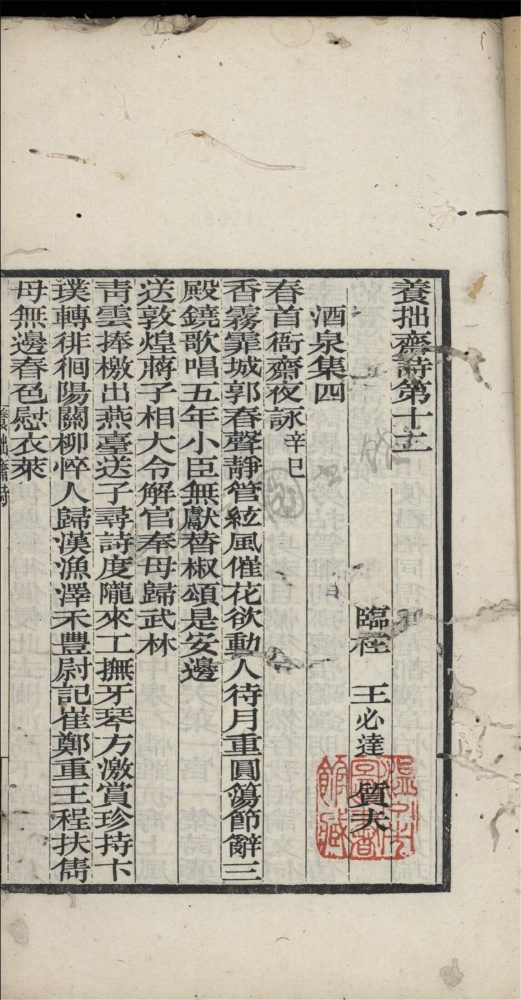 養拙齋詩第十二
臨桂 王必達 質夫
酒泉集四
春首衙齋夜詠辛巳
香霧霏城郭春聲靜管絃風催花欲動人待月重圓蕩節辭三
殿鐃歌唱五年小臣無獻替椒頌是安邊
送敦煌蔣子相大令解官奉母歸武林
青雲捧檄出燕臺送子尋詩度隴來工撫牙琴方激賞珍持卞
璞轉徘徊陽關柳悴人歸漢漁澤禾豐尉記崔鄭重王程扶雋
母無邊春色慰衣萊
養拙齋詩